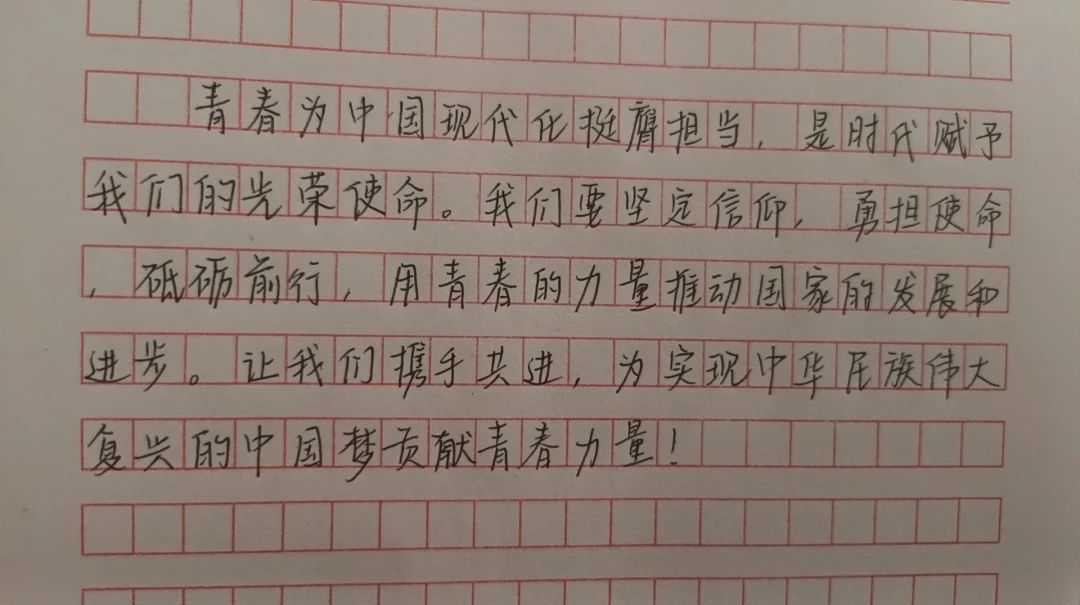 青春为中国现代化挺膺担当,是时代赋予
我们的光荣使命。我们要坚定信仰,勇担使命
,砥砺前行,用青春的力量推动国家的发展和
进步。让我们携手共进,为实现中华民族伟大
复兴的中国梦贡献青春力量!